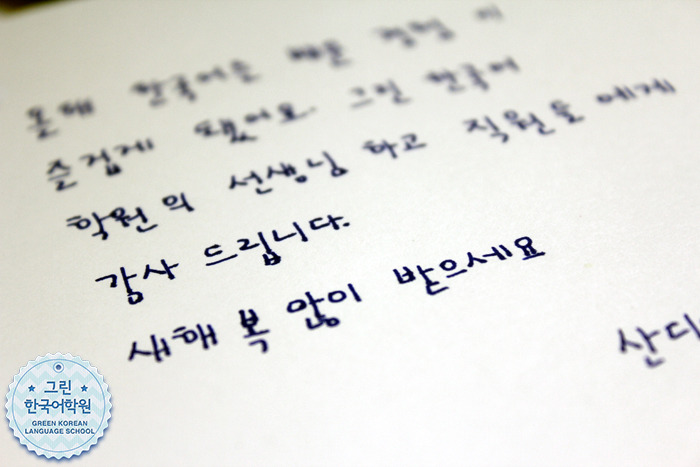 올해 한국어는 배운 경험 이
즐겁게 됐어요. 그린 한국어
학원의 선생님 하고 직원들에게
감사 드립니다.
새해 복 않이 받으세요
산디
그린
한국어학원
GREEN KOREAN
LANGUAGE SCHOOL